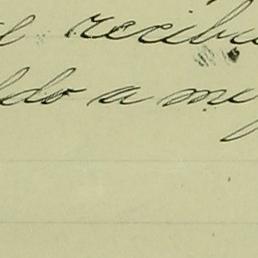 e recibi
ldo a me